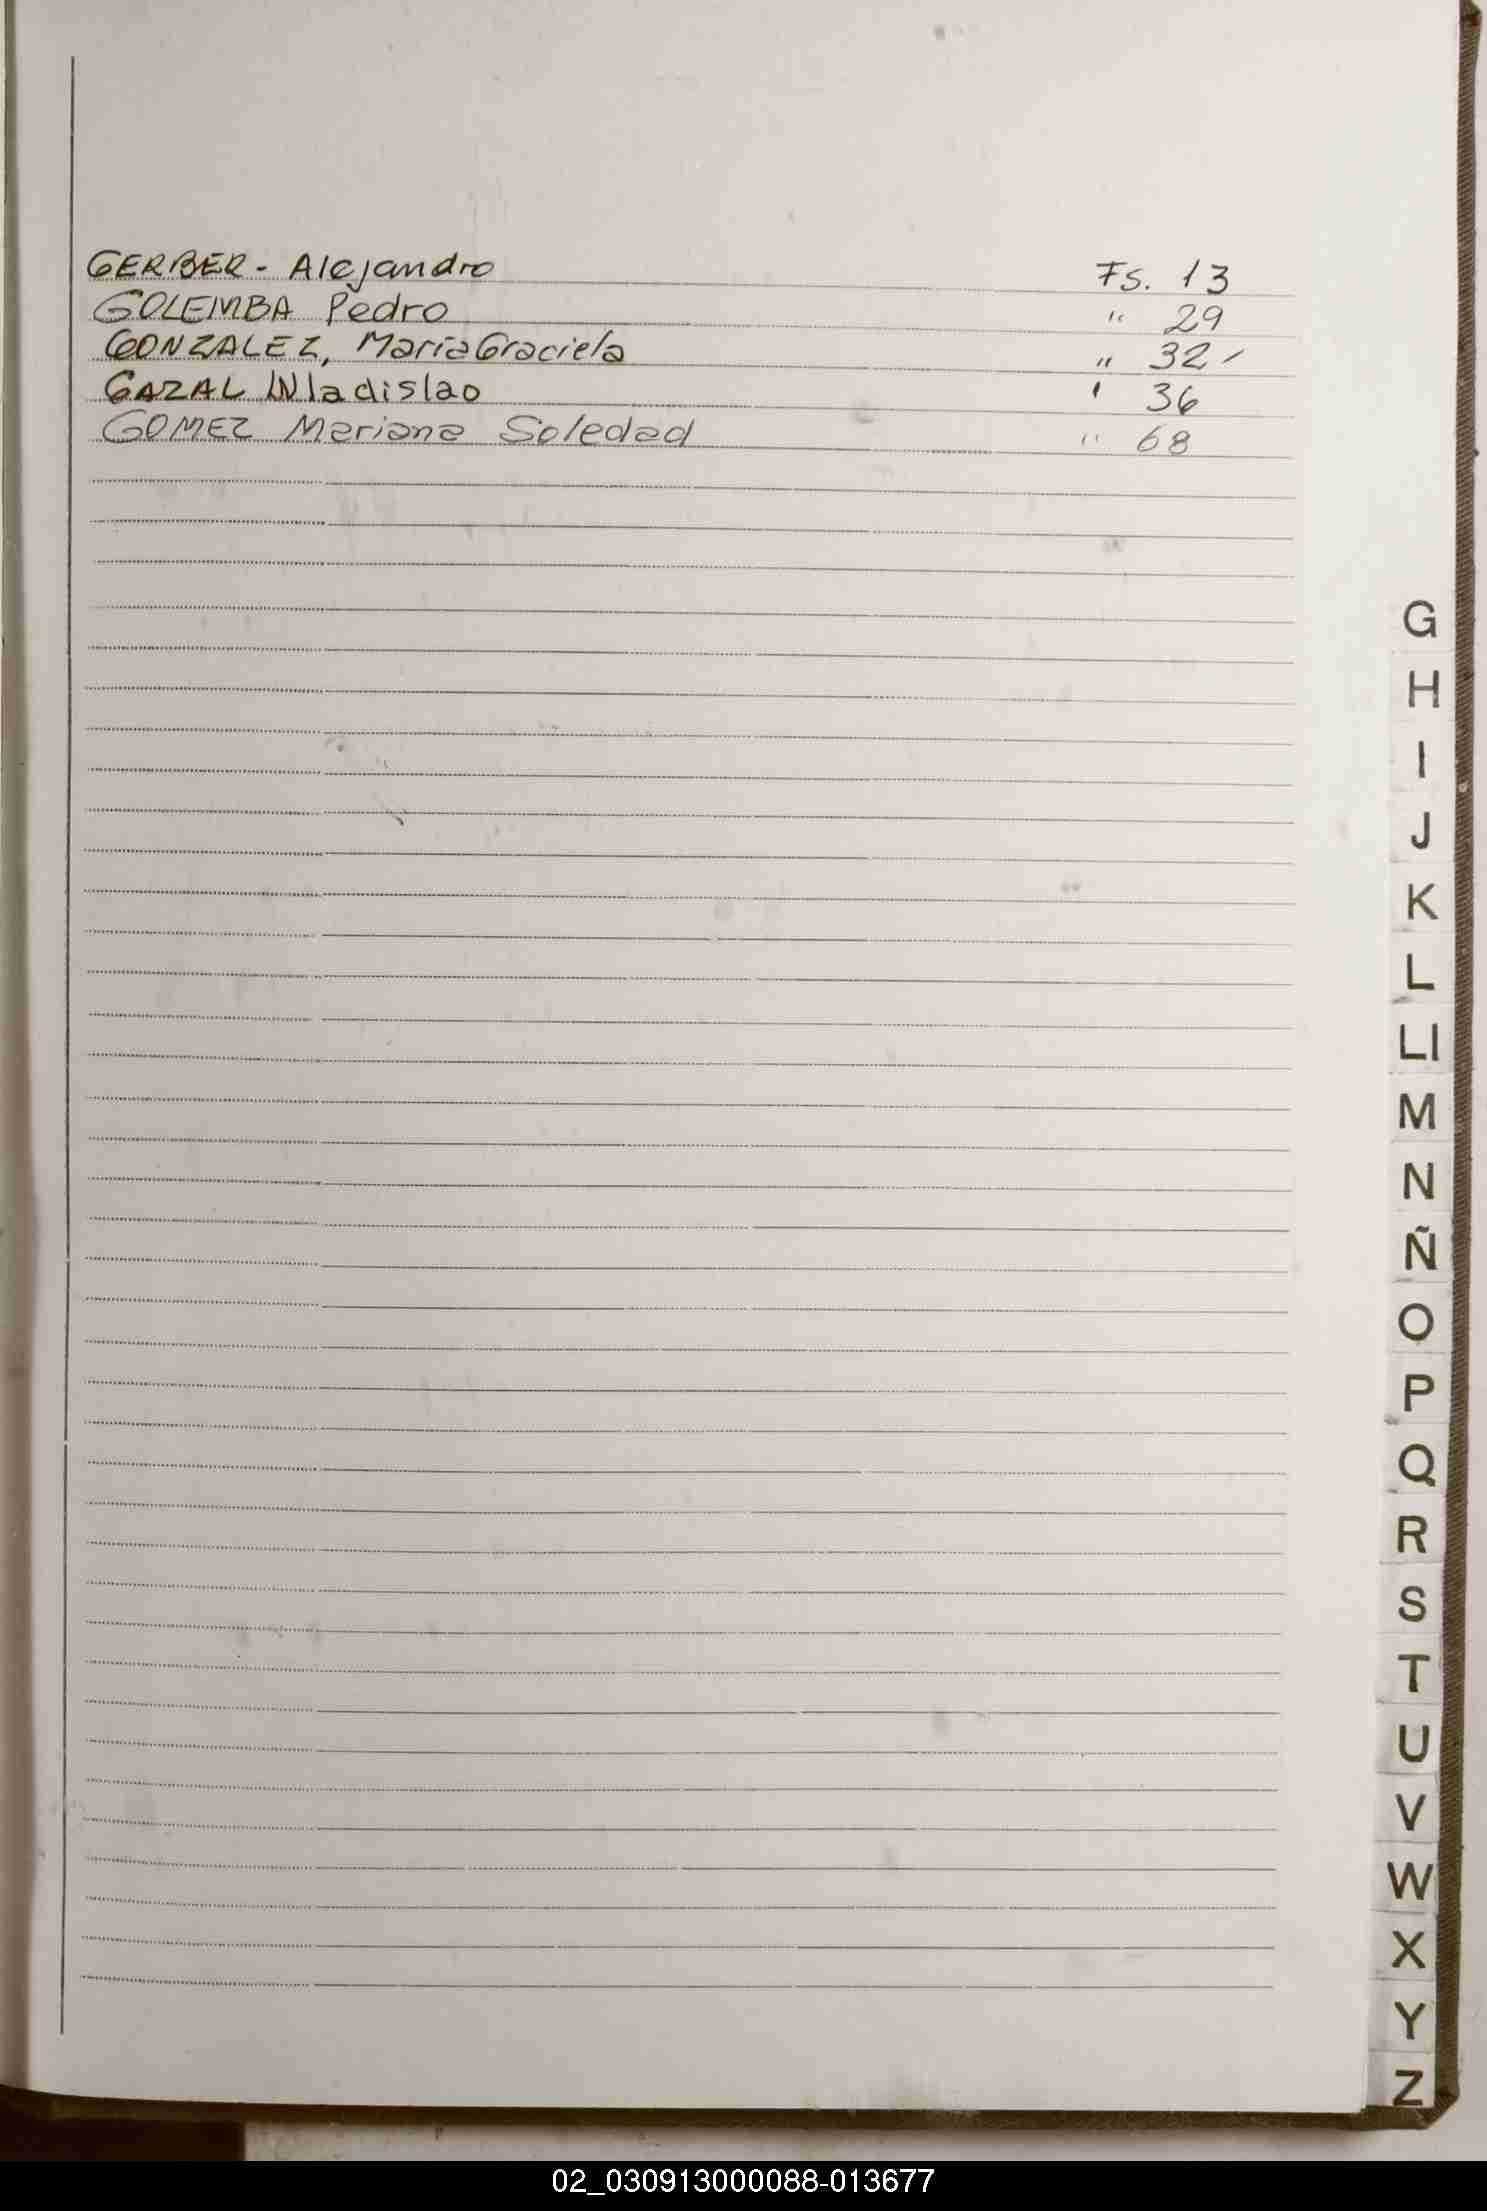 GERBER - Alejandro Fs. 13
GOLEMBA Pedro " 29
GONZALEZ, María Graciela " 32 -
GAZAL Wladislao ' 36
GOMEZ Mariana Soledad " 68
G
H
I
J
K
L
Ll
M
N
Ñ
O
P
Q
R
S
T
U
V
W
X
Y
Z
02_030913000088-013677